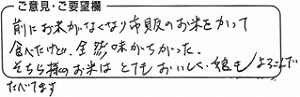 ご意見・ご要望欄
前にお米がなくなり市販のお米をかって
食べたけど、全然味がちがった。
そちら様のお米はとてもおいしく娘もよろこんで
たべてます